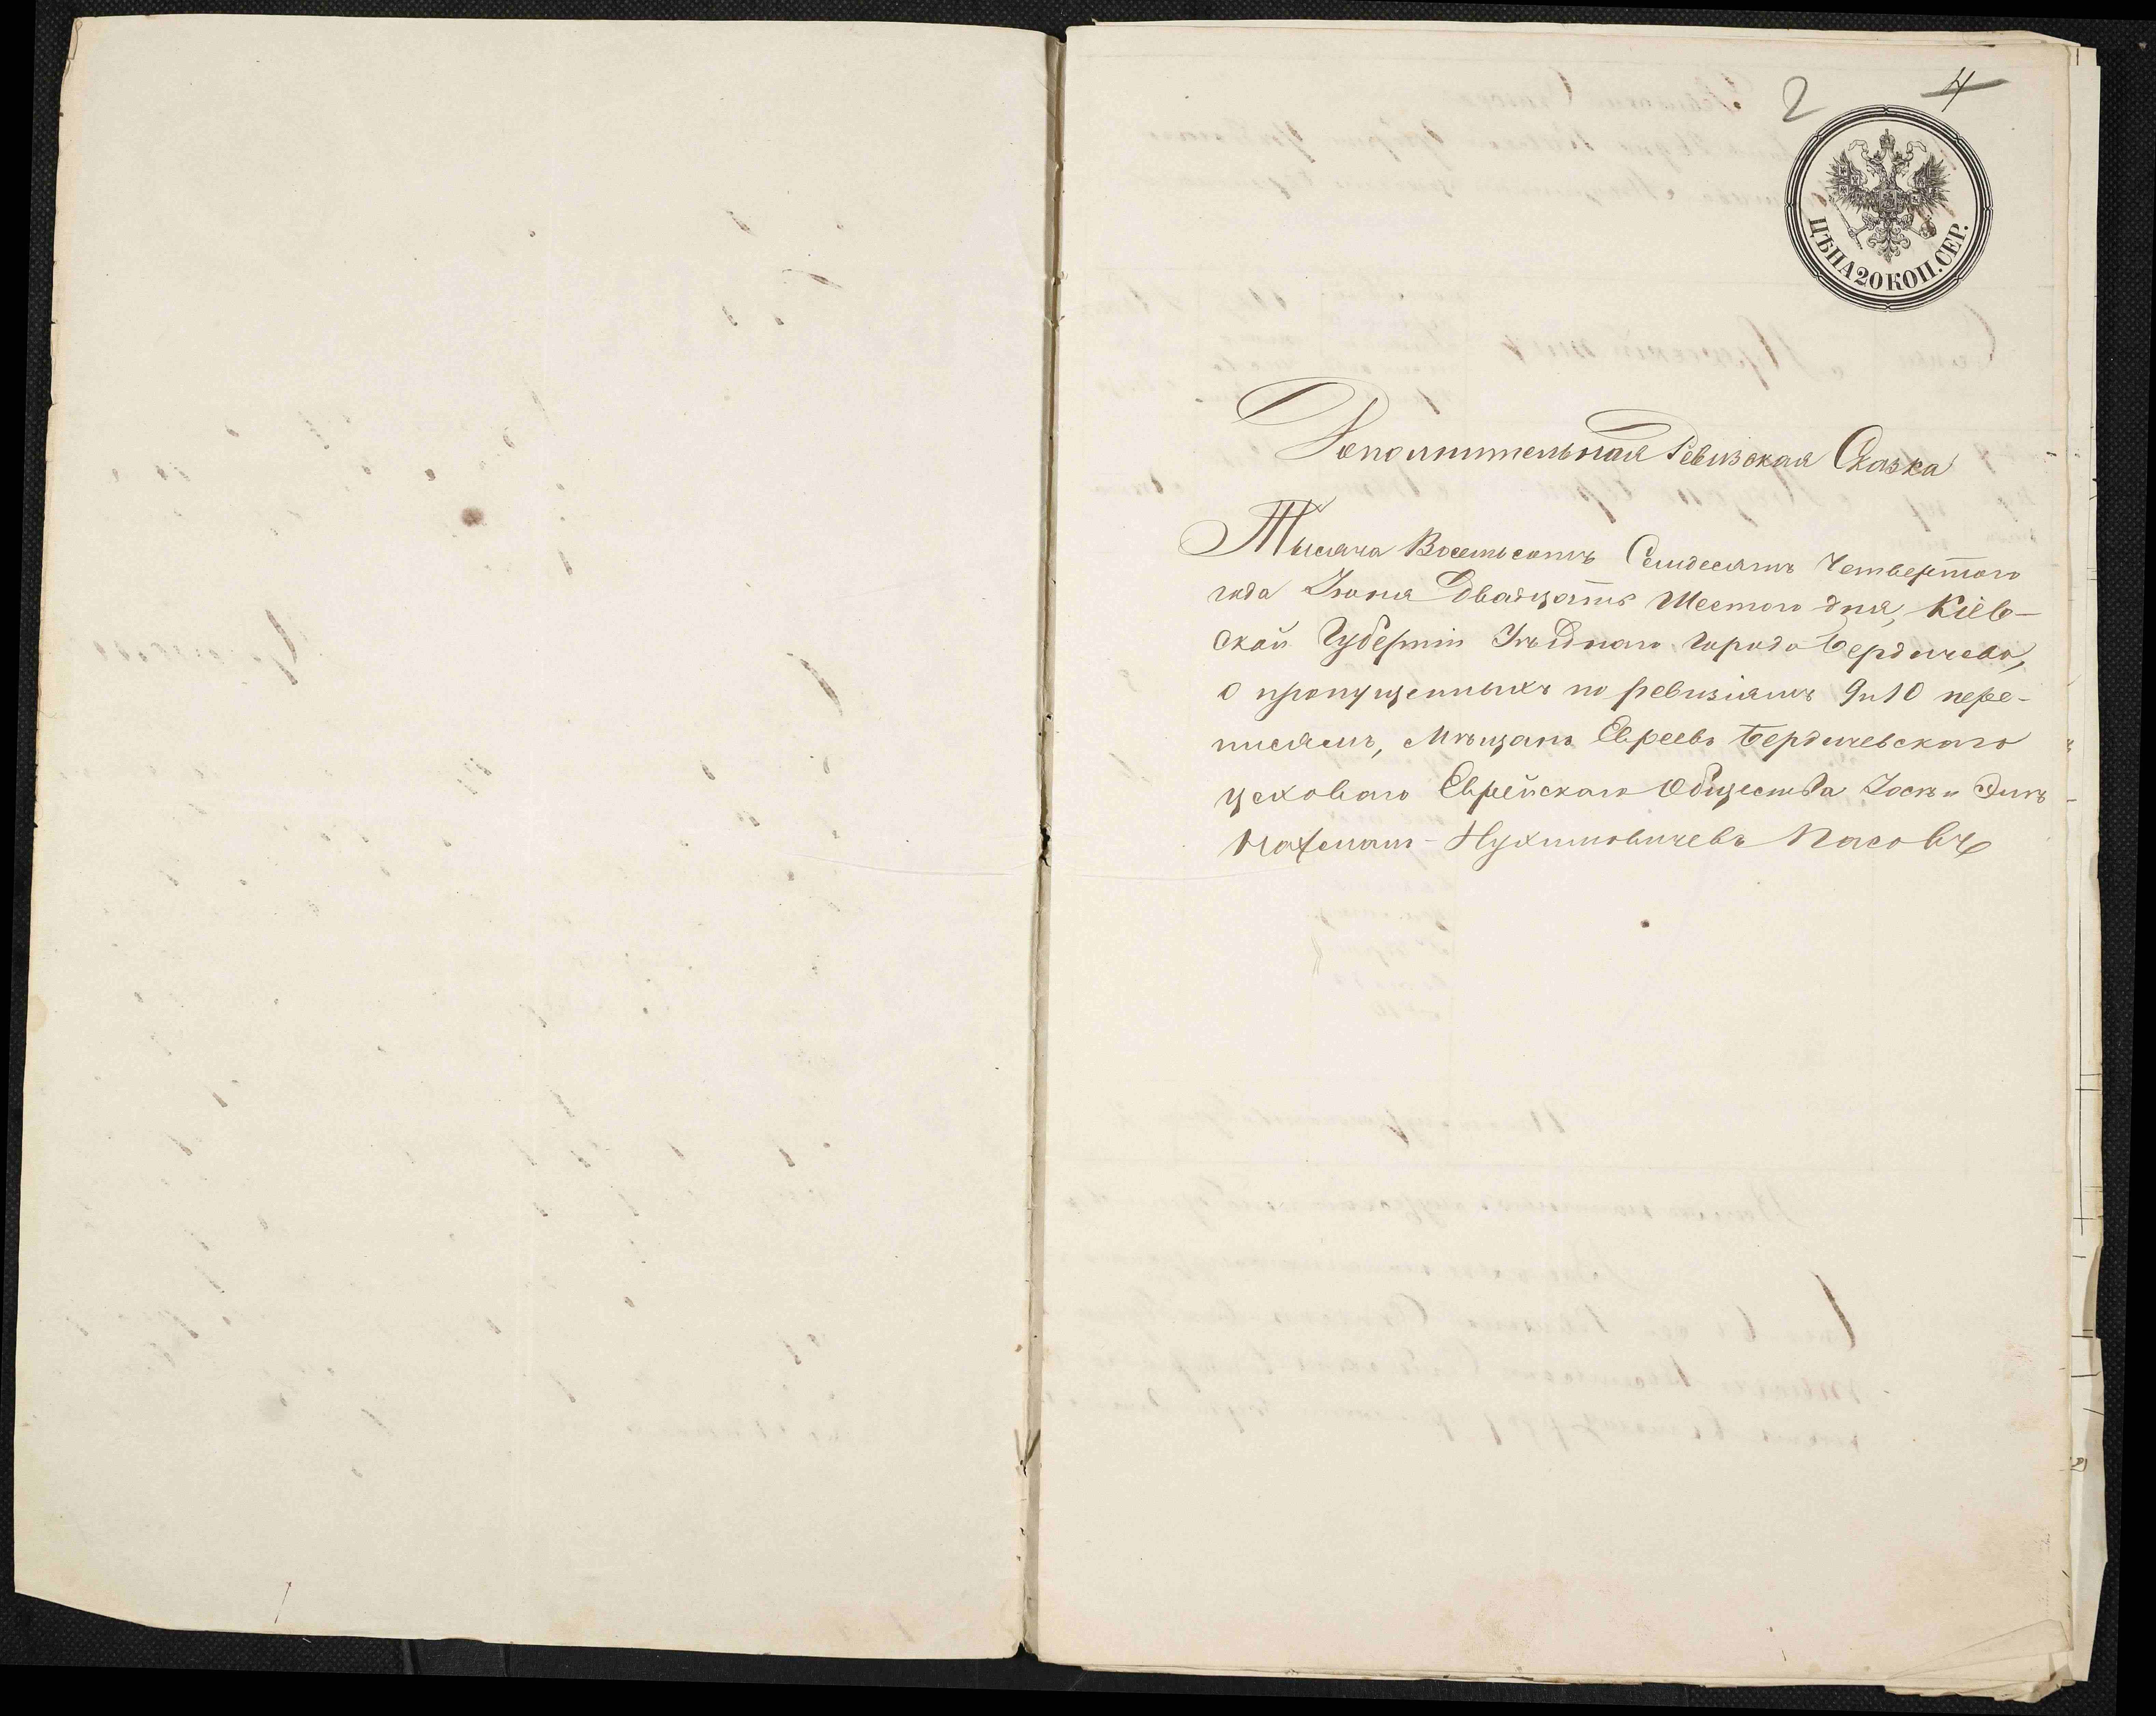 2 4
ЦѢНА 20 КОП. СЕР.
Дополнительная Ревизская Сказка
Тысяча Восемьсотъ Семдесятъ Четвертого
года Іюня Двадцать Шестого дня, Кіев-
ской Губерніи Уѣзднаго Города Бердичева,
о пропущенныхъ по ревизіямъ 9 и 10 пере-
писямъ, Мѣщанъ Евреевъ Бердичевскаго
цеховаго Еврейскаго Общества Іось и
Нухимовичевъ Пасовъ